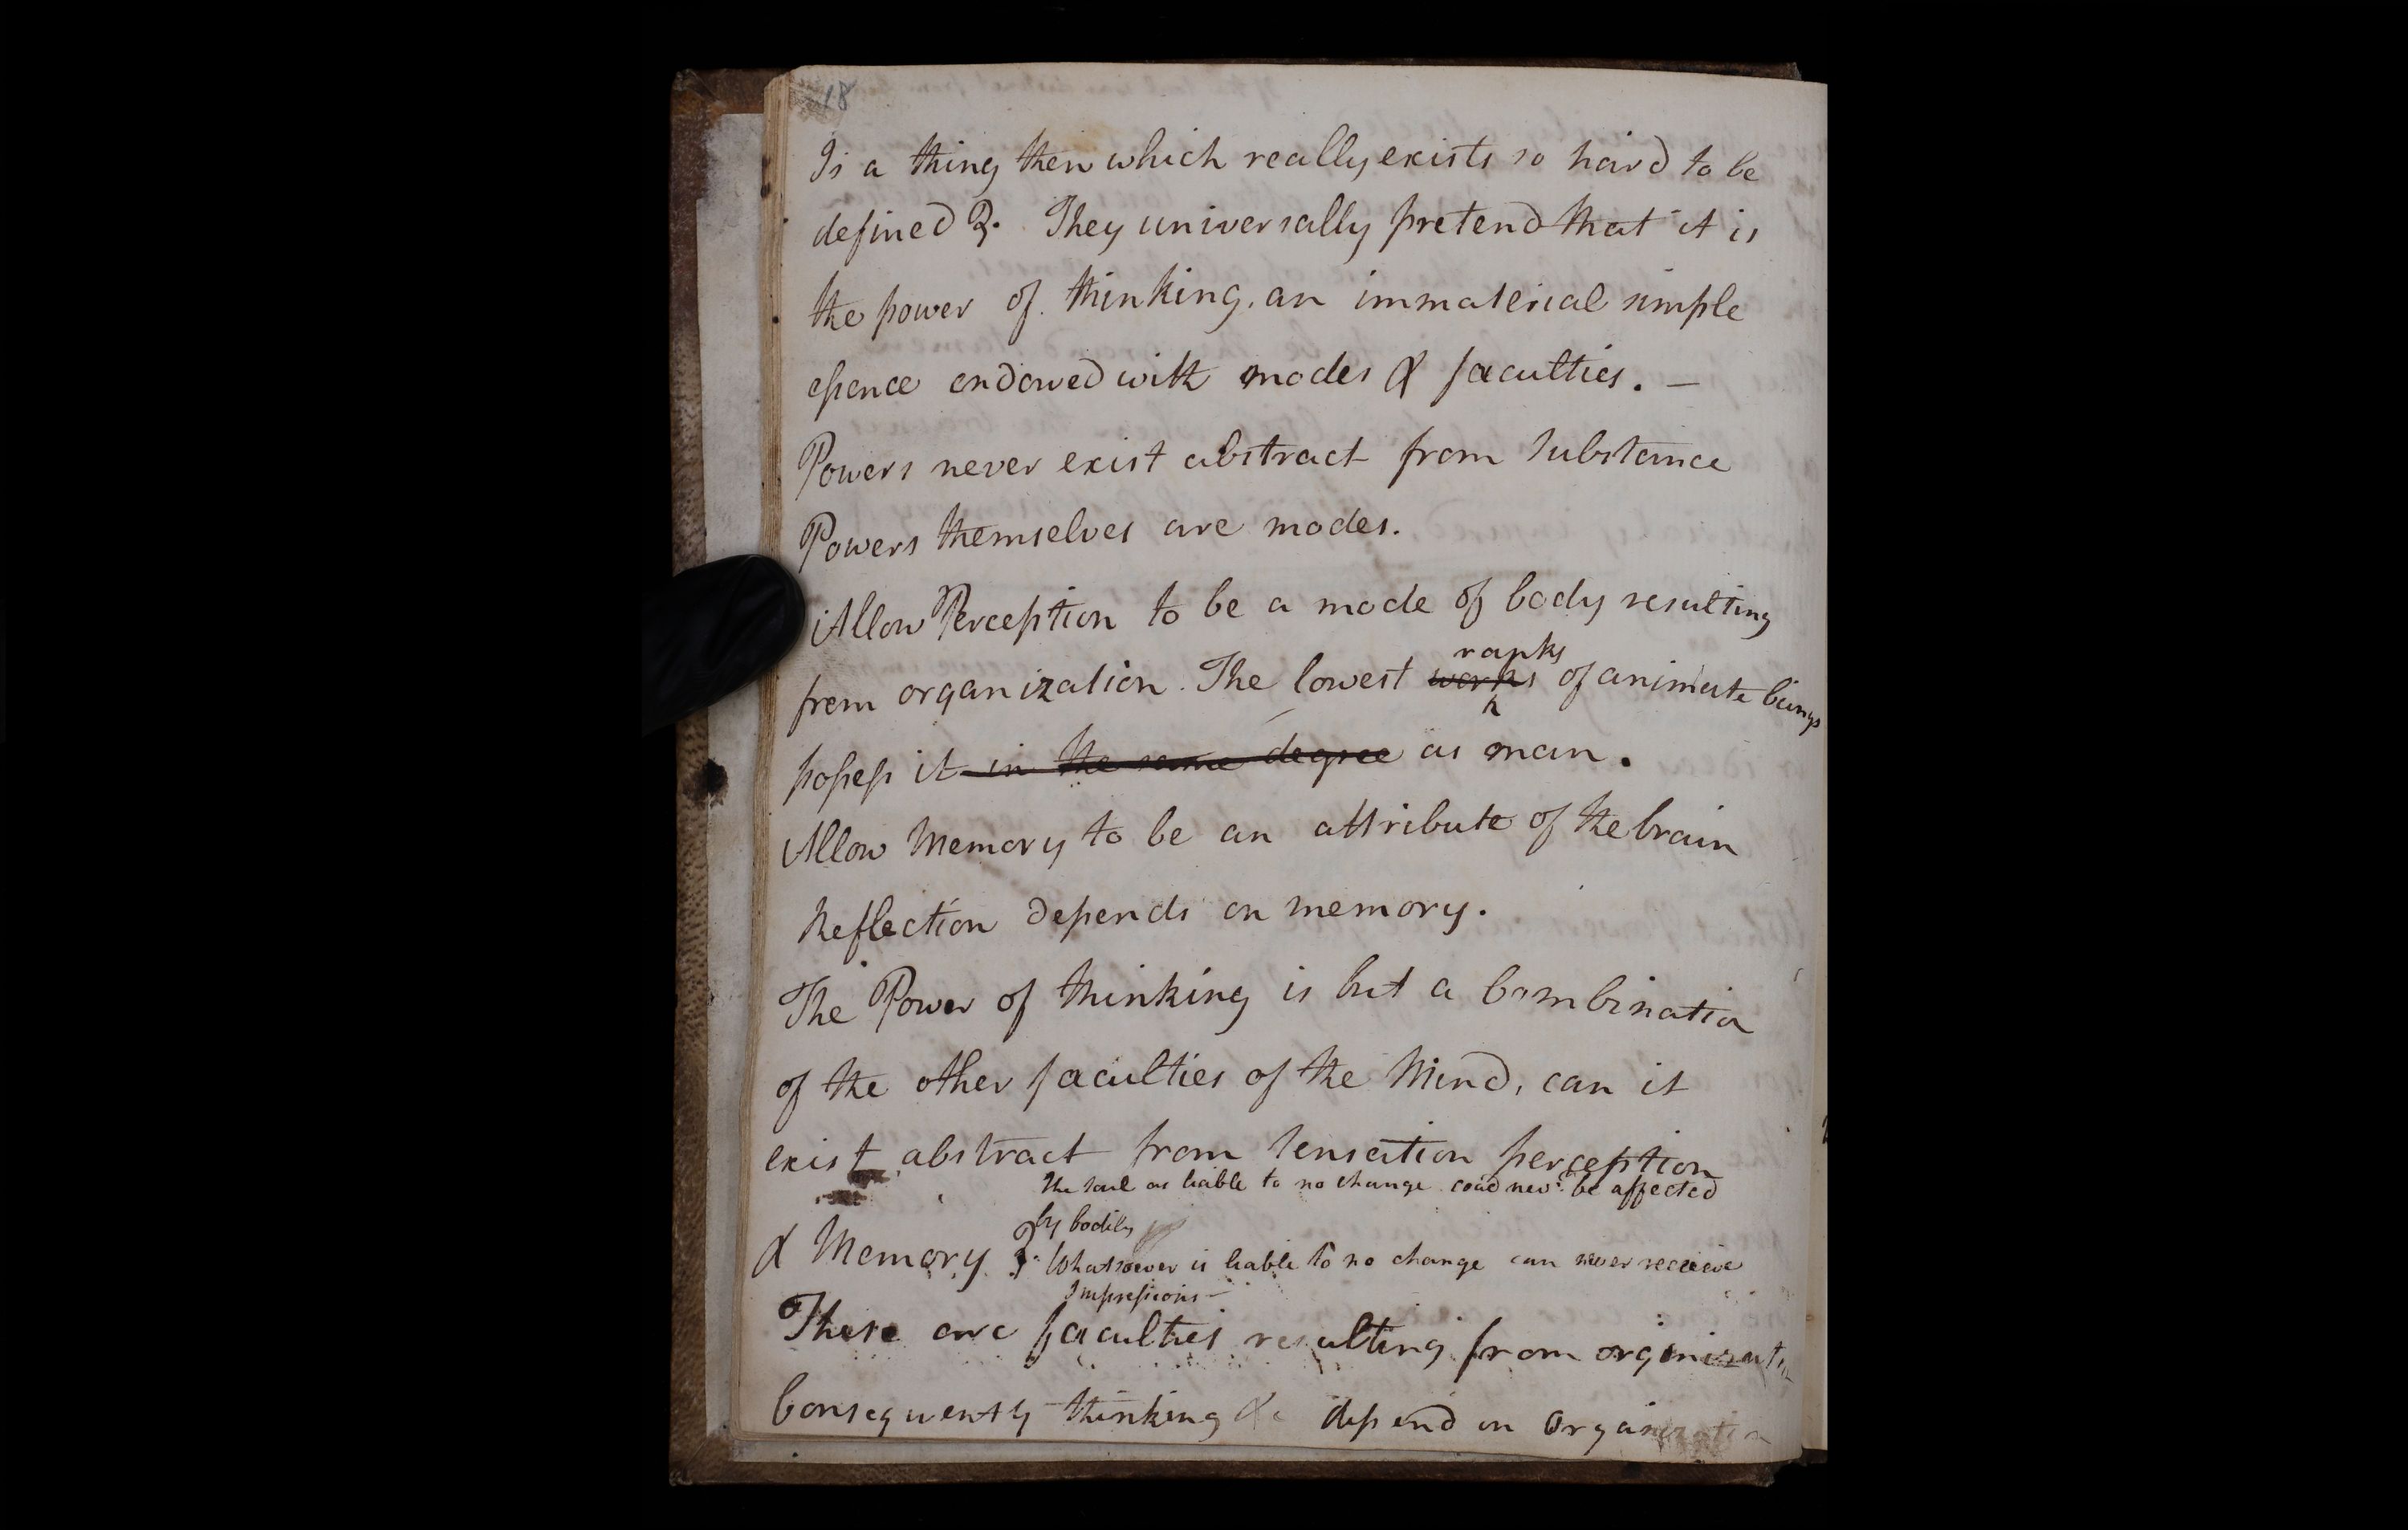 18
Is a thing then which really exists so hard to be
defined?. They universally pretend that it is
the power of thinking. an immaterial simple
essence endowed with modes & faculties. —
Powers never exist abstract from substance
Powers themselves are modes.
Allow Perception to be a mode of body resulting
from organization. The lowest ranks of animate beings
possess it in the same degree as man.
Allow Memory to be an attribute of the brain
Reflection depends on memory.
The Power of thinking is but a Combination
of the other faculties of the Mind, can it
exist abstract from sensation perception
The soul as liable to no change coud nevr. be affected
by bodily
& Memory ?. Whatsoever is liable to no change can never receieve
Impressions —
These are faculties resulting from organization
Consequently thinking &c depend on Organization